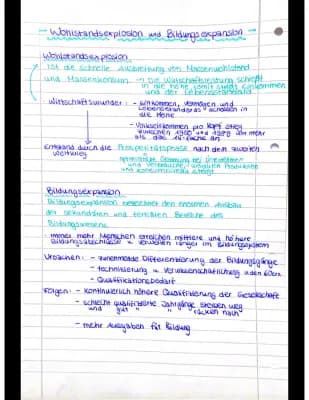 → Wohlstandsexplosion und Bildungsexpansion ←
Wohlstandsexplosion
ist die schnelle Ausbreitung von Massenwohlstand
und Massenkonsum → Die Wirtschaftsleistung schießt
in die Höhe, somit auch Einkommen
und der Lebensstandard
Wirtschaftswunder: - Einkommen, Vermögen und
Lebensstandards schießen in
die Höhe
- Volkseinkommen pro Kopf stieg
zwischen 1950 und 1970 um mehr
als das
Entstand durch die Prosperitätsphase nach dem zweiten
Weltkrieg
optimistische Stimmung bei Unternehmen
und Verbraucher, Produktion
und Konsumniveau steigt
Bildungsexpansion
Bildungsexpansion bezeichnet den enormen Ausbau
der sekundären und tertiären Bereiche des
Bildungswesens
- immer mehr Menschen erreichen mittlere und höhere
Bildungsabschlüsse u. verweilen länger im Bildungssystem
Ursachen: - zunehmende Differenzierung der Bildungsgänge
- Technisierung u. Verwissenschaftlichung in den 60ern
- Qualifikationsbedarf
Folgen: - kontinuierlich höhere Qualifizierung der Gesellschaft
- schlecht qualifizierte Jahrgänge sterben weg
und gut " " rücken nach
- mehr Ausgaben für Bildung